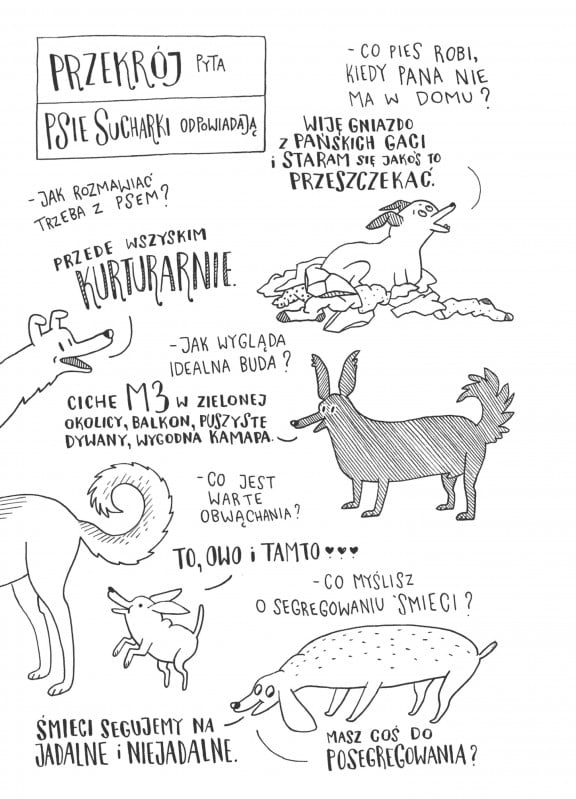 PRZEKRÓJ PYTA
PSIE SUCHARKI ODPOWIADAJĄ
- CO PIES ROBI,
KIEDY PANA NIE
MA W DOMU?
WIJĘ GNIAZDO
Z PAŃSKICH GACI
i STARAM SIĘ JAKOŚ TO
PRZESZCZEKAĆ.
- JAK ROZMAWIAĆ
TRZEBA Z PSEM?
PRZEDE WSZYSKIM
KURTURARNIE.
- JAK WYGLĄDA
IDEALNA BUDA?
CICHE M3 W ZIELONEJ
OKOLICY, BALKON, PUSZYSTE
DYWANY, WYGODNA KAMAPA.
- CO JEST
WARTE
OBWĄCHANIA?
TO, OWO i TAMTO ♥♥♥
- CO MYŚLISZ
O SEGREGOWANIU ŚMIECI?
ŚMIECI SEGUJEMY NA
JADALNE i NIEJADALNE.
MASZ COŚ DO
POSEGREGOWANIA?